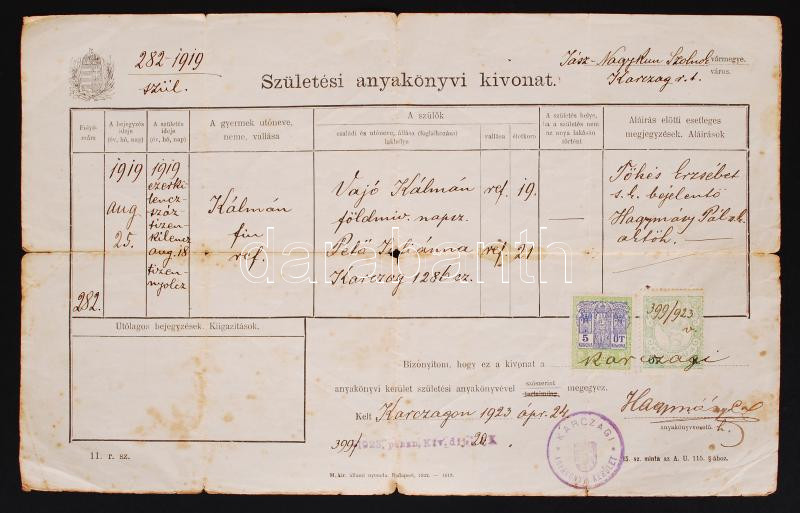 282-1919
szül.
Jász-Nagykun Szolnok vármegye.
Karczag r.t. város.
Születési anyakönyvi kivonat.
Folyó-
szám
A bejegyzés
ideje
(év, hó, nap)
A születés
ideje
(év, hó, nap)
A gyermek utóneve,
neme, vallása
A szülők
családi és utóneve, állása (foglalkozása)
lakhelye
vallása
életkora
A születés helye,
ha a születés nem
az anya lakásán
történt
Aláírás előtti esetleges
megjegyzések. Aláírások
282.
1919
aug
25.
1919
ezerki
lencz-
száz
tizen-
kilencz
aug. 18
tizen-
nyolcz
Kálmán
fiu
ref.
Vajó Kálmán ref. 19.
földmiv. napsz.
Pető Juliánna ref. 21
Karczag 1286 sz.
Tőkés Erzsébet
s.k. bejelentő
Hagymásy Pál s.k.
darabanth
Utólagos bejegyzések. Kiigazítások.
5 ÖT
KORONA KORONA
399/923
Bizonyítom, hogy ez a kivonat a karczagi
anyakönyvi kerület születési anyakönyvével szószerint megegyez.
tartalmilag
Kelt Karczagon 1923 ápr. 24.
anyakönyvvezető
399/
KARCZAGI
ANYAKÖNYVI KERÜLET
11. r. sz.
M. kir. állami nyomda. Budapest,
15. sz. minta az A. U. 115. §-ához.